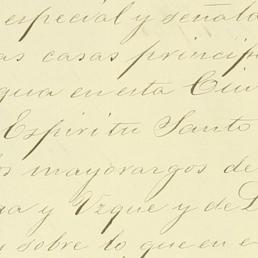 especial y señala
as casas princip
gua en esta Ciu
Espiritu Santo
os mayorazgos de
na y Vzque y de L
sobre lo que en e